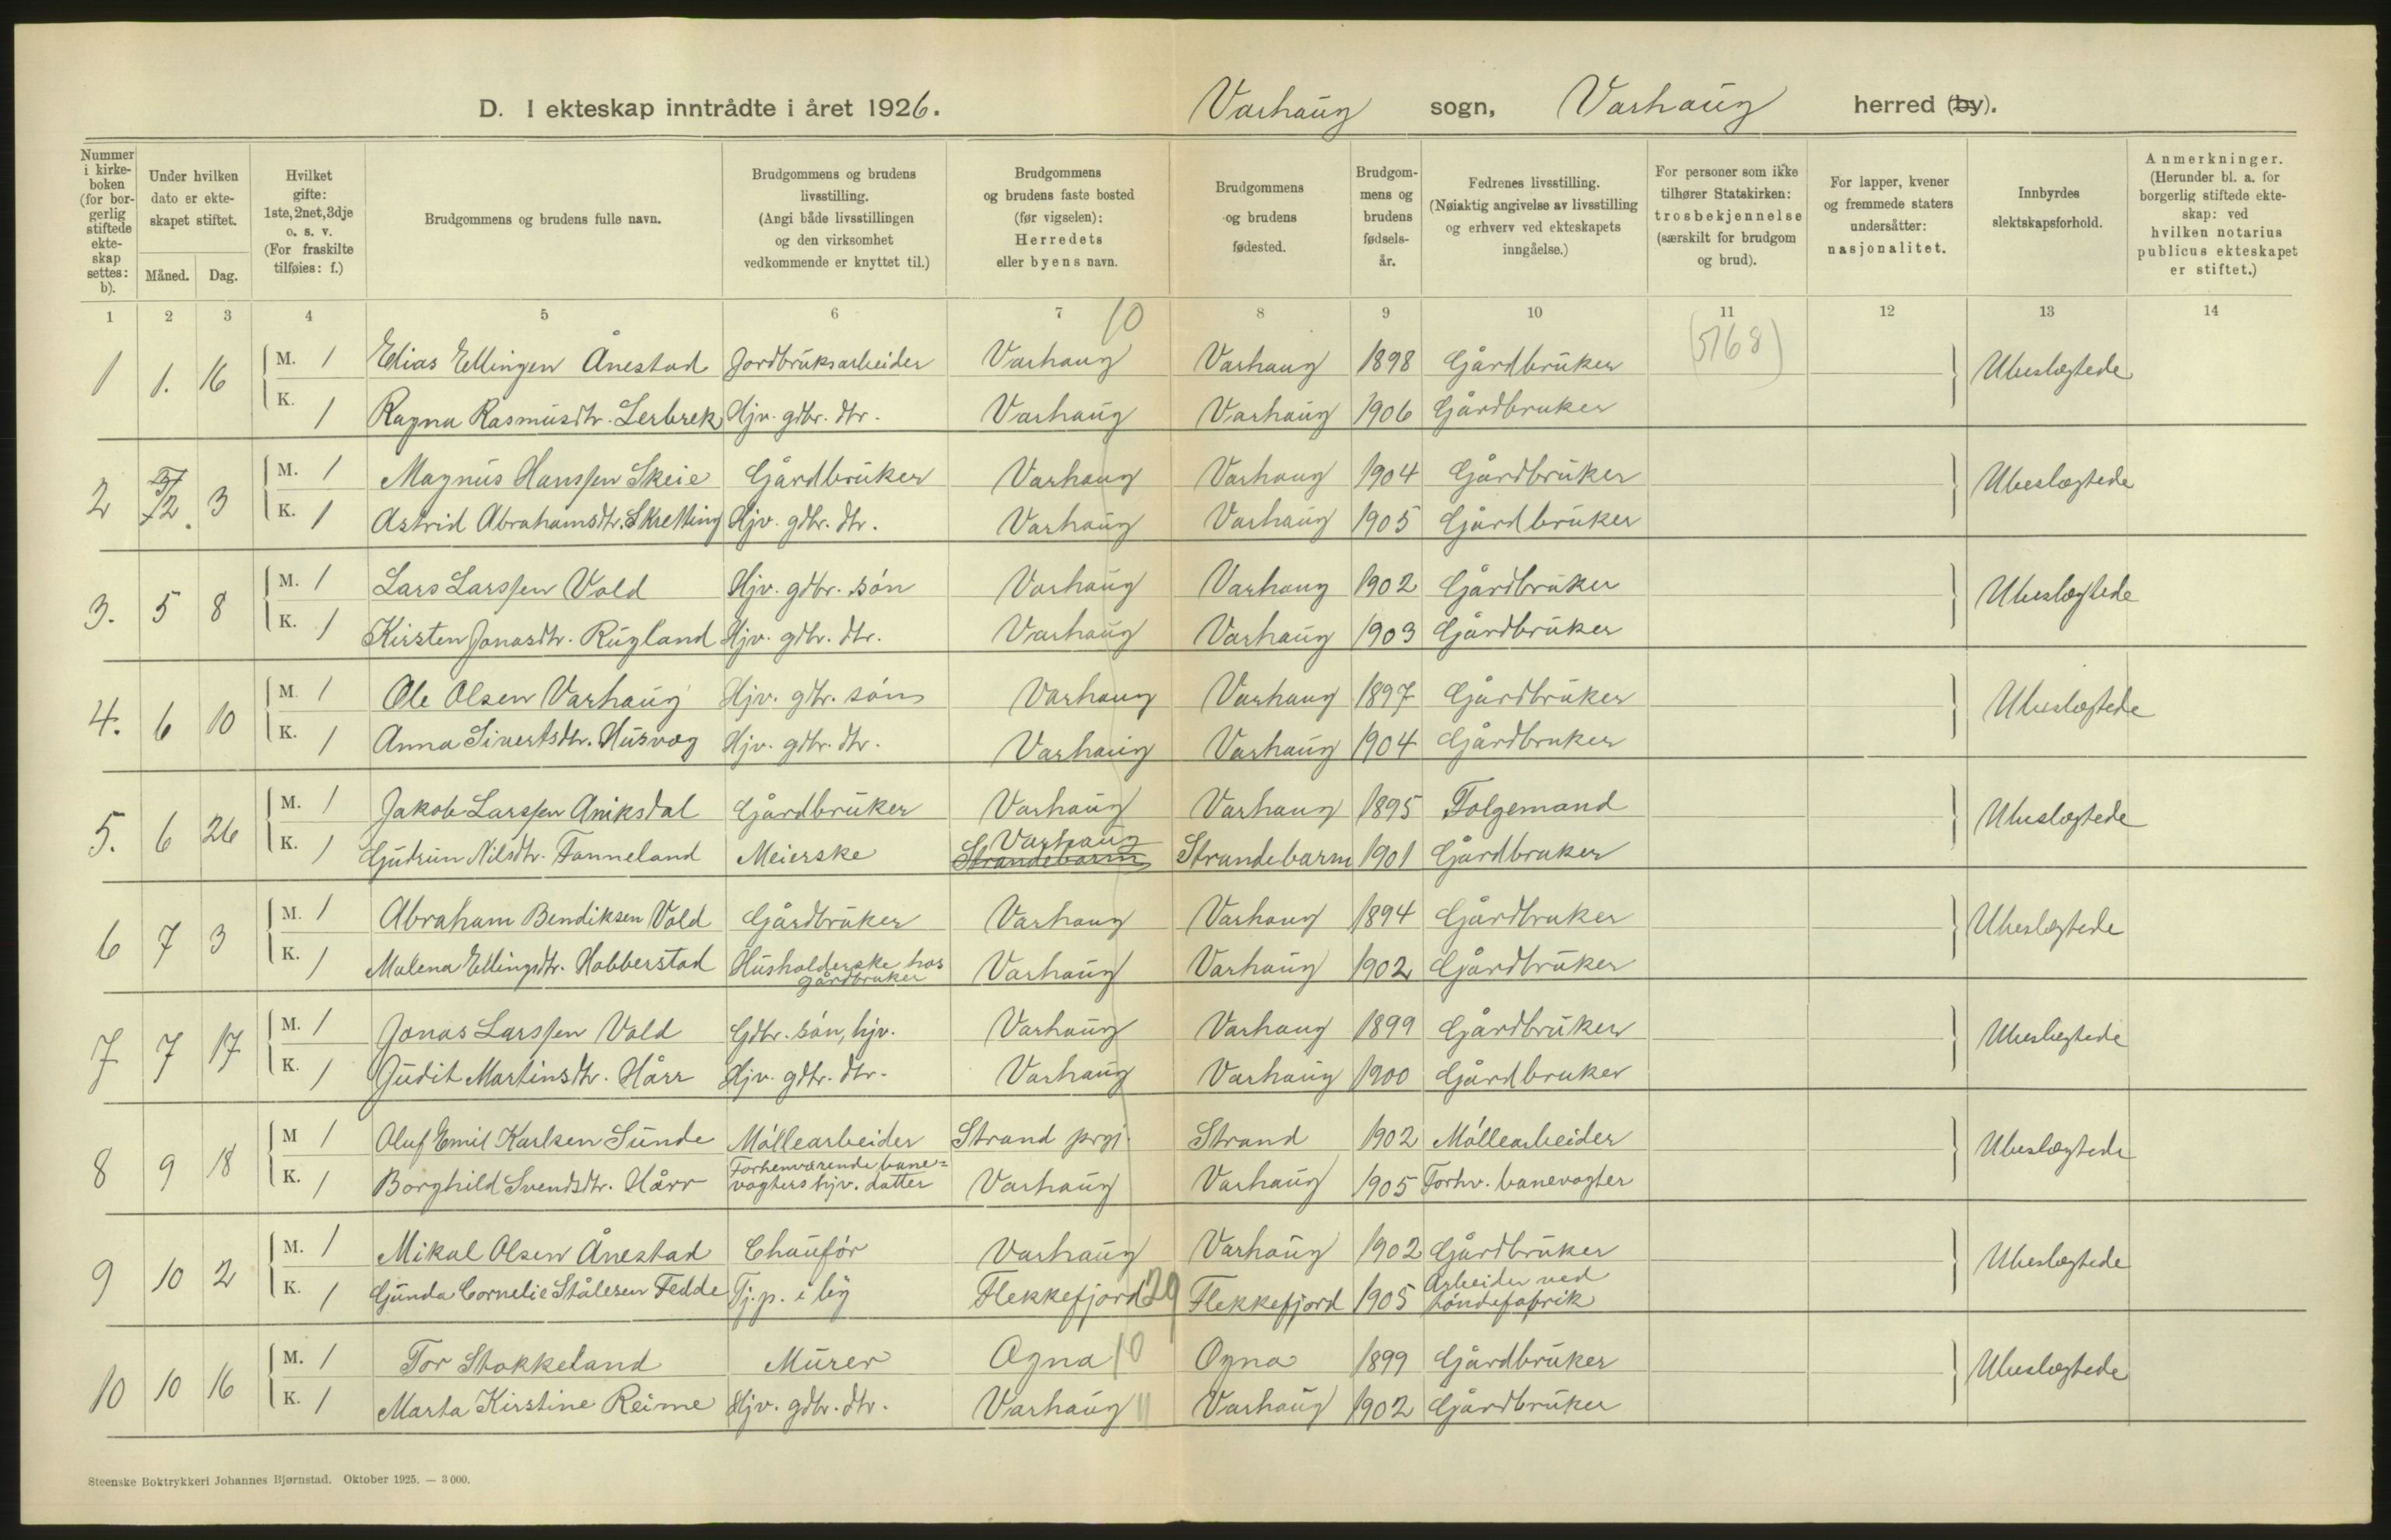 D. I ekteskap inntrådte i året 1926. Varhaug sogn, Varhaug herred (by).
Nummer i kirkeboken (for borgerlig stiftede ekteskap settes: b).
Under hvilken dato er ekteskapet stiftet.
Måned. Dag.
Hvilket gifte: 1ste, 2net, 3dje o. s. v. (For fraskilte tilføies: f.)
Brudgommens og brudens fulle navn.
Brudgommens og brudens livsstilling. (Angi både livsstillingen og den virksomhet vedkommende er knyttet til.)
Brudgommens og brudens faste bosted (før vigselen): Herredets eller byens navn.
Brudgommens og brudens fødested.
Brudgommens og brudens fødselsår.
Fedrenes livsstilling. (Nøiaktig angivelse av livsstilling og erhverv ved ekteskapets inngåelse.)
For personer som ikke tilhører Statskirken: trosbekjennelse (særskilt for brudgom og brud).
For lapper, kvener og fremmede staters undersåtter: nasjonalitet.
Innbyrdes slektskapsforhold.
Anmerkninger. (Herunder bl. a. for borgerlig stiftede ekteskap: ved hvilken notarius publicus ekteskapet er stiftet.)
1 2 3 4 5 6 7 8 9 10 11 12 13 14
10 (5768)
1 1. 16 M. 1 Elias Ellingen Ånestad Jordbruksarbeider Varhaug Varhaug 1898 Gårdbruker Ubeslægtede
K. 1 Ragna Rasmusdtr. Lerbrek Hjv. gdbr. dtr. Varhaug Varhaug 1906 Gårdbruker
2 2. 3 M. 1 Magnus Hanssen Skeie Gårdbruker Varhaug Varhaug 1904 Gårdbruker Ubeslægtede
K. 1 Astrid Abrahamsdtr. Skretting Hjv. gdbr. dtr. Varhaug Varhaug 1905 Gårdbruker
3. 5 8 M. 1 Lars Larssen Vold Hjv. gdbr. søn Varhaug Varhaug 1902 Gårdbruker Ubeslægtede
K. 1 Kirsten Jonasdtr. Rugland Hjv. gdbr. dtr. Varhaug Varhaug 1903 Gårdbruker
4. 6 10 M. 1 Ole Olsen Varhaug Hjv. gdbr. søn Varhaug Varhaug 1897 Gårdbruker Ubeslægtede
K. 1 Anna Sivertsdtr. Husvæg Hjv. gdbr. dtr. Varhaug Varhaug 1904 Gårdbruker
5. 6 26 M. 1 Jakob Larssen Aniksdal Gårdbruker Varhaug Varhaug 1895 Folgemand Ubeslægtede
K. 1 Gudrun Nilsdtr. Fanneland Meierske Varhaug Strandebarm Strandebarm 1901 Gårdbruker
6 7 3 M. 1 Abraham Bendiksen Vold Gårdbruker Varhaug Varhaug 1894 Gårdbruker Ubeslægtede
K. 1 Malena Ellingsdtr. Hobberstad Husholderske hos gårdbruker Varhaug Varhaug 1902 Gårdbruker
7 7 17 M. 1 Jonas Larssen Vold Gdbr. søn, hjv. Varhaug Varhaug 1899 Gårdbruker Ubeslægtede
K. 1 Judit Martinsdtr. Hårr Hjv. gdbr. dtr. Varhaug Varhaug 1900 Gårdbruker
8 9 18 M 1 Oluf Emil Karlsen Sunde Møllearbeider Strand prgj. Strand 1902 Møllearbeider Ubeslægtede
K. 1 Borghild Svendsdtr. Hårr Forhenværende banevogters hjv. datter Varhaug Varhaug 1905 Forhv. banevogter
9 10 2 M. 1 Mikal Olsen Ånestad Chaufør Varhaug Varhaug 1902 Gårdbruker Ubeslægtede
K. 1 Gunda Cornelie Stålesen Fedde Tj.p. i by Flekkefjord 29 Flekkefjord 1905 Arbeider ved tøndefabrik
10 10 16 M. 1 Tor Stokkeland Murer Ogna 10 Ogna 1899 Gårdbruker Ubeslægtede
K. 1 Marta Kirstine Reime Hjv. gdbr. dtr. Varhaug 11 Varhaug 1902 Gårdbruker
Steenske Boktrykkeri Johannes Bjørnstad. Oktober 1925. — 3000.